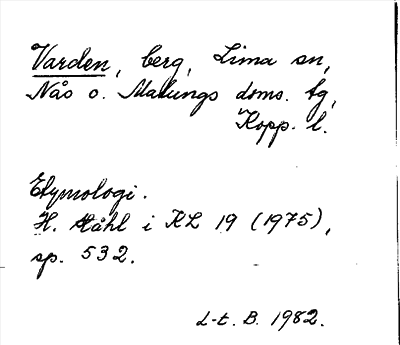 Varden, berg, Lima sn,
Nås o. Malungs doms. tg,
Kopp. l.
Etymologi.
H. Ståhl i KL 19 (1975),
sp. 532.
L-t. B. 1982.